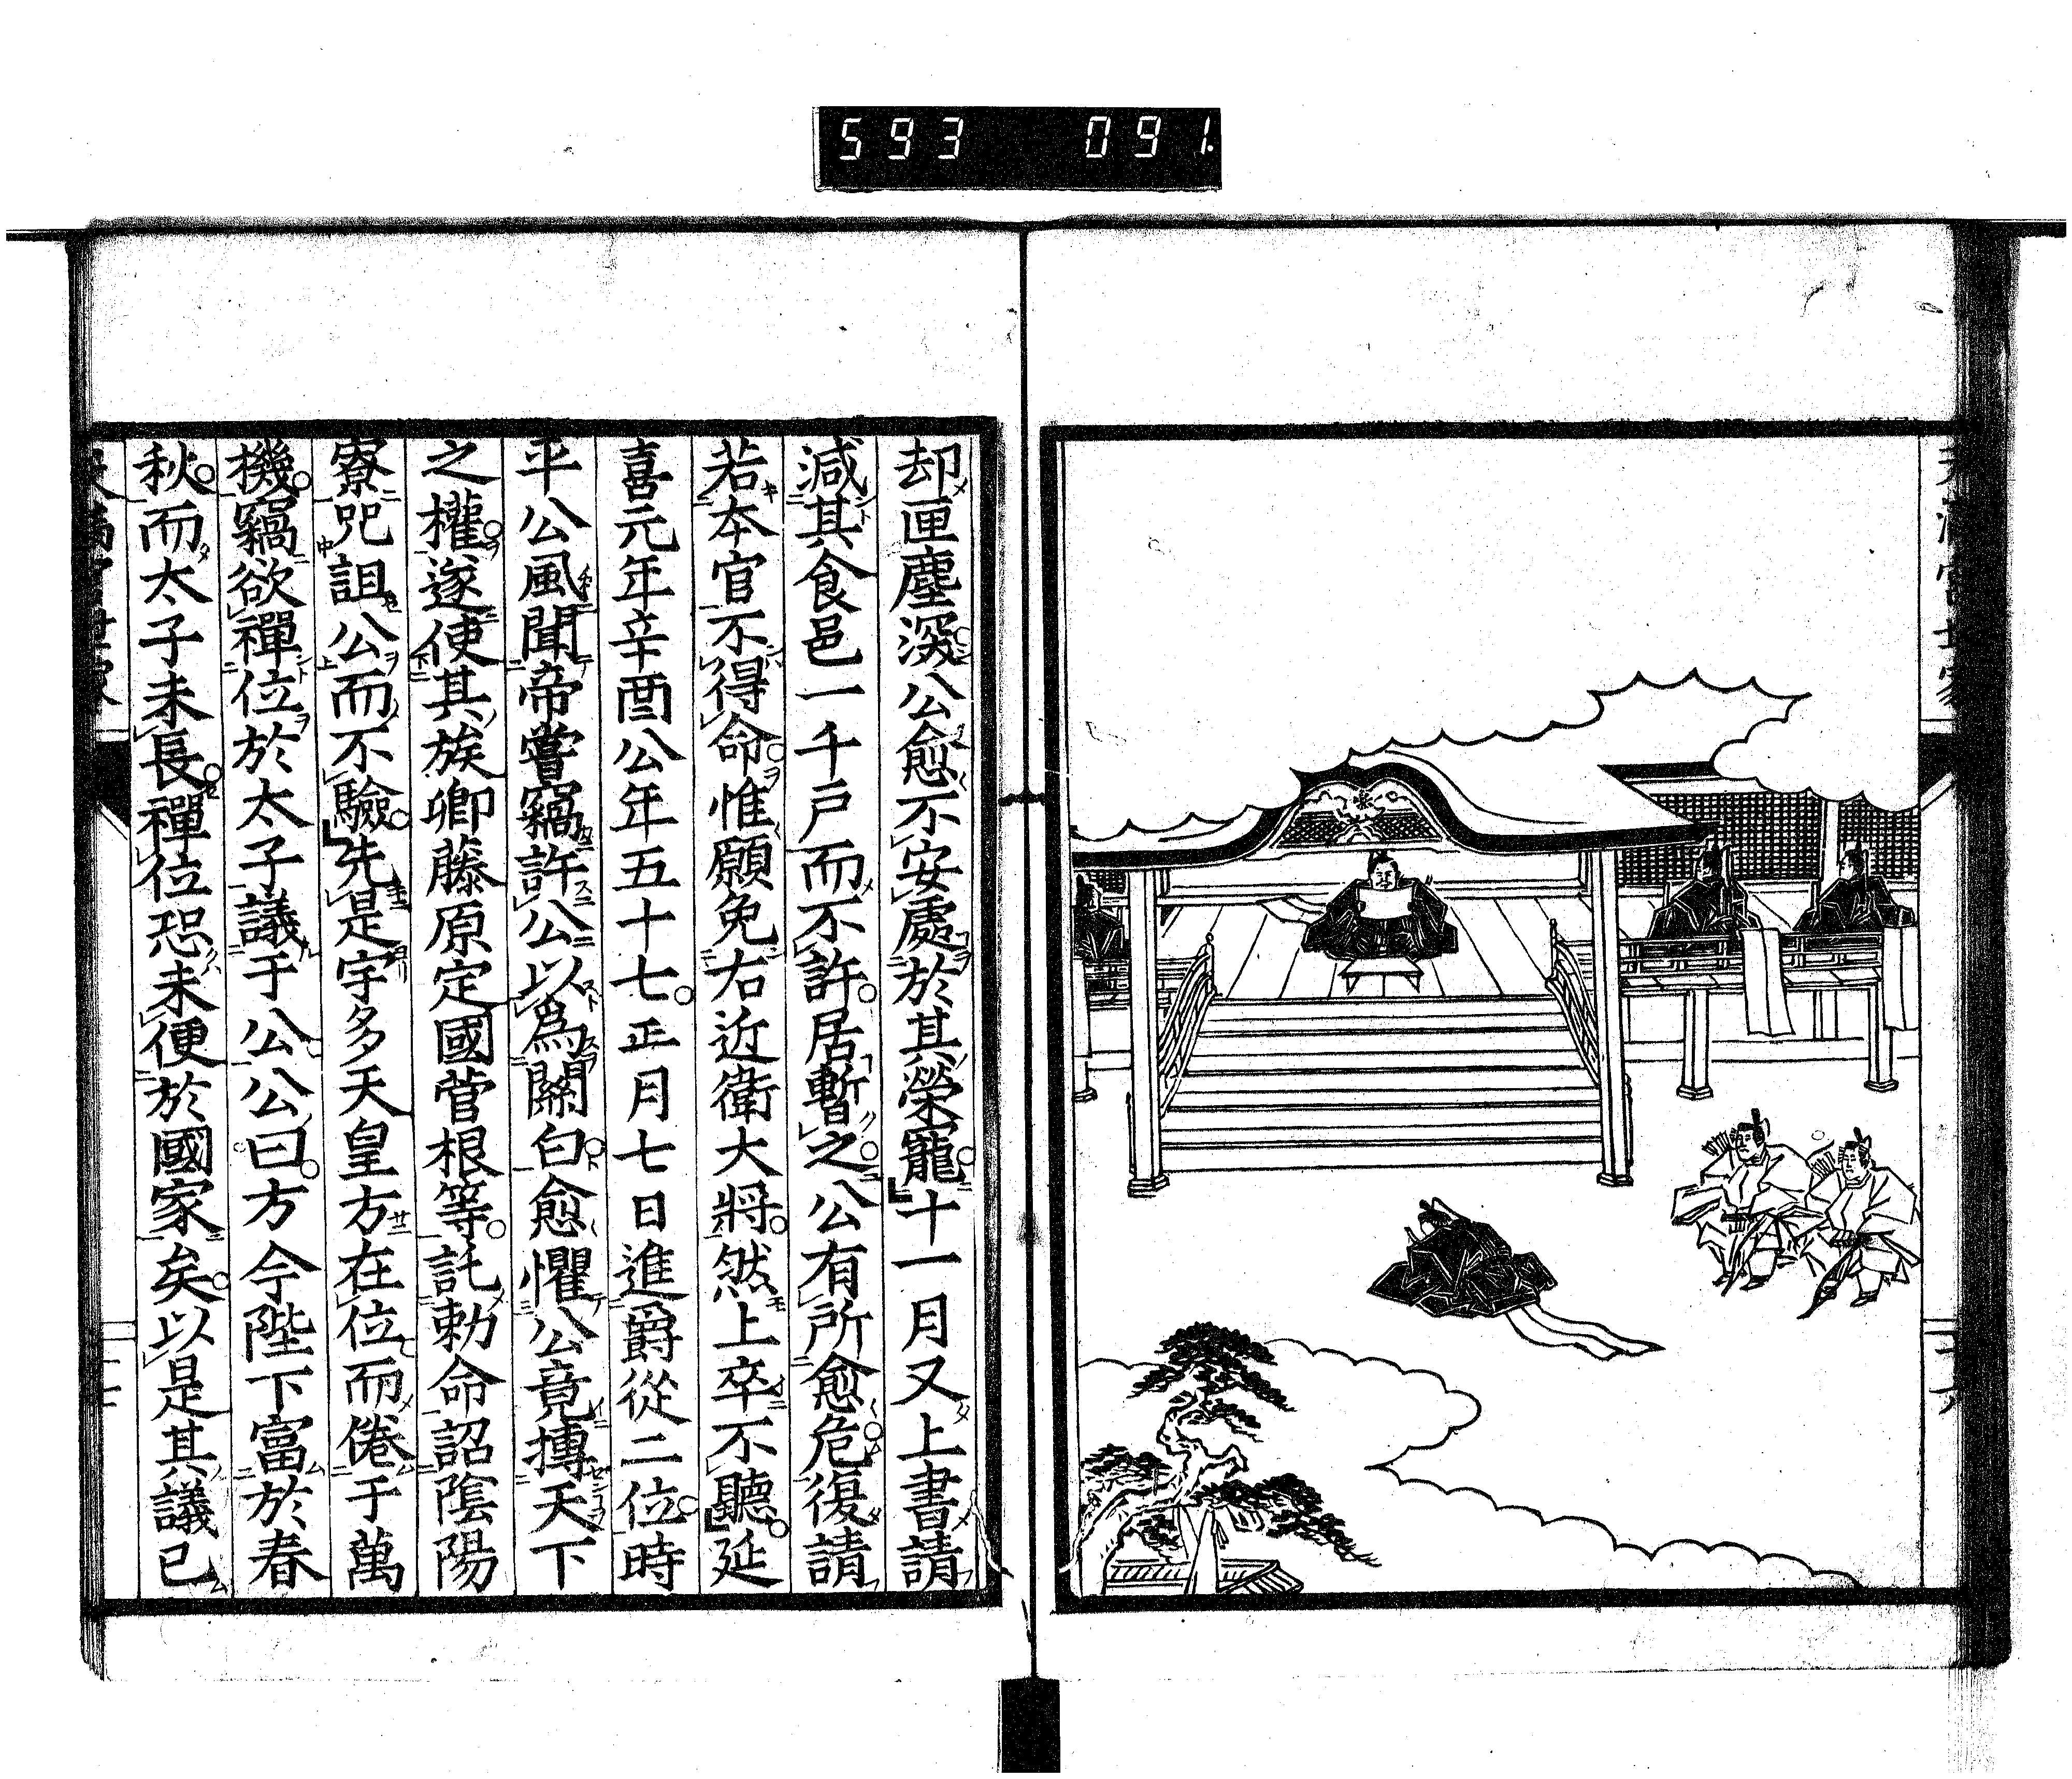 593 091.
却匣塵深公愈不安處於其榮寵十一月又上書請
減其食邑一千戸而不許居暫之公有所愈危復請
若本官不得命惟願免右近衛大將然上卒不聽延
喜元年辛酉公年五十七正月七日進爵從二位時
平公風聞帝嘗竊許公以爲關白愈懼公竟摶天下
之權遂使其族卿藤原定國菅根等託勅命詔陰陽
寮咒詛公而不驗先是宇多天皇方在位而倦于萬
機竊欲禪位於太子議于公公曰方今陛下富於春
秋而太子未長禪位恐未便於國家矣以是其議已